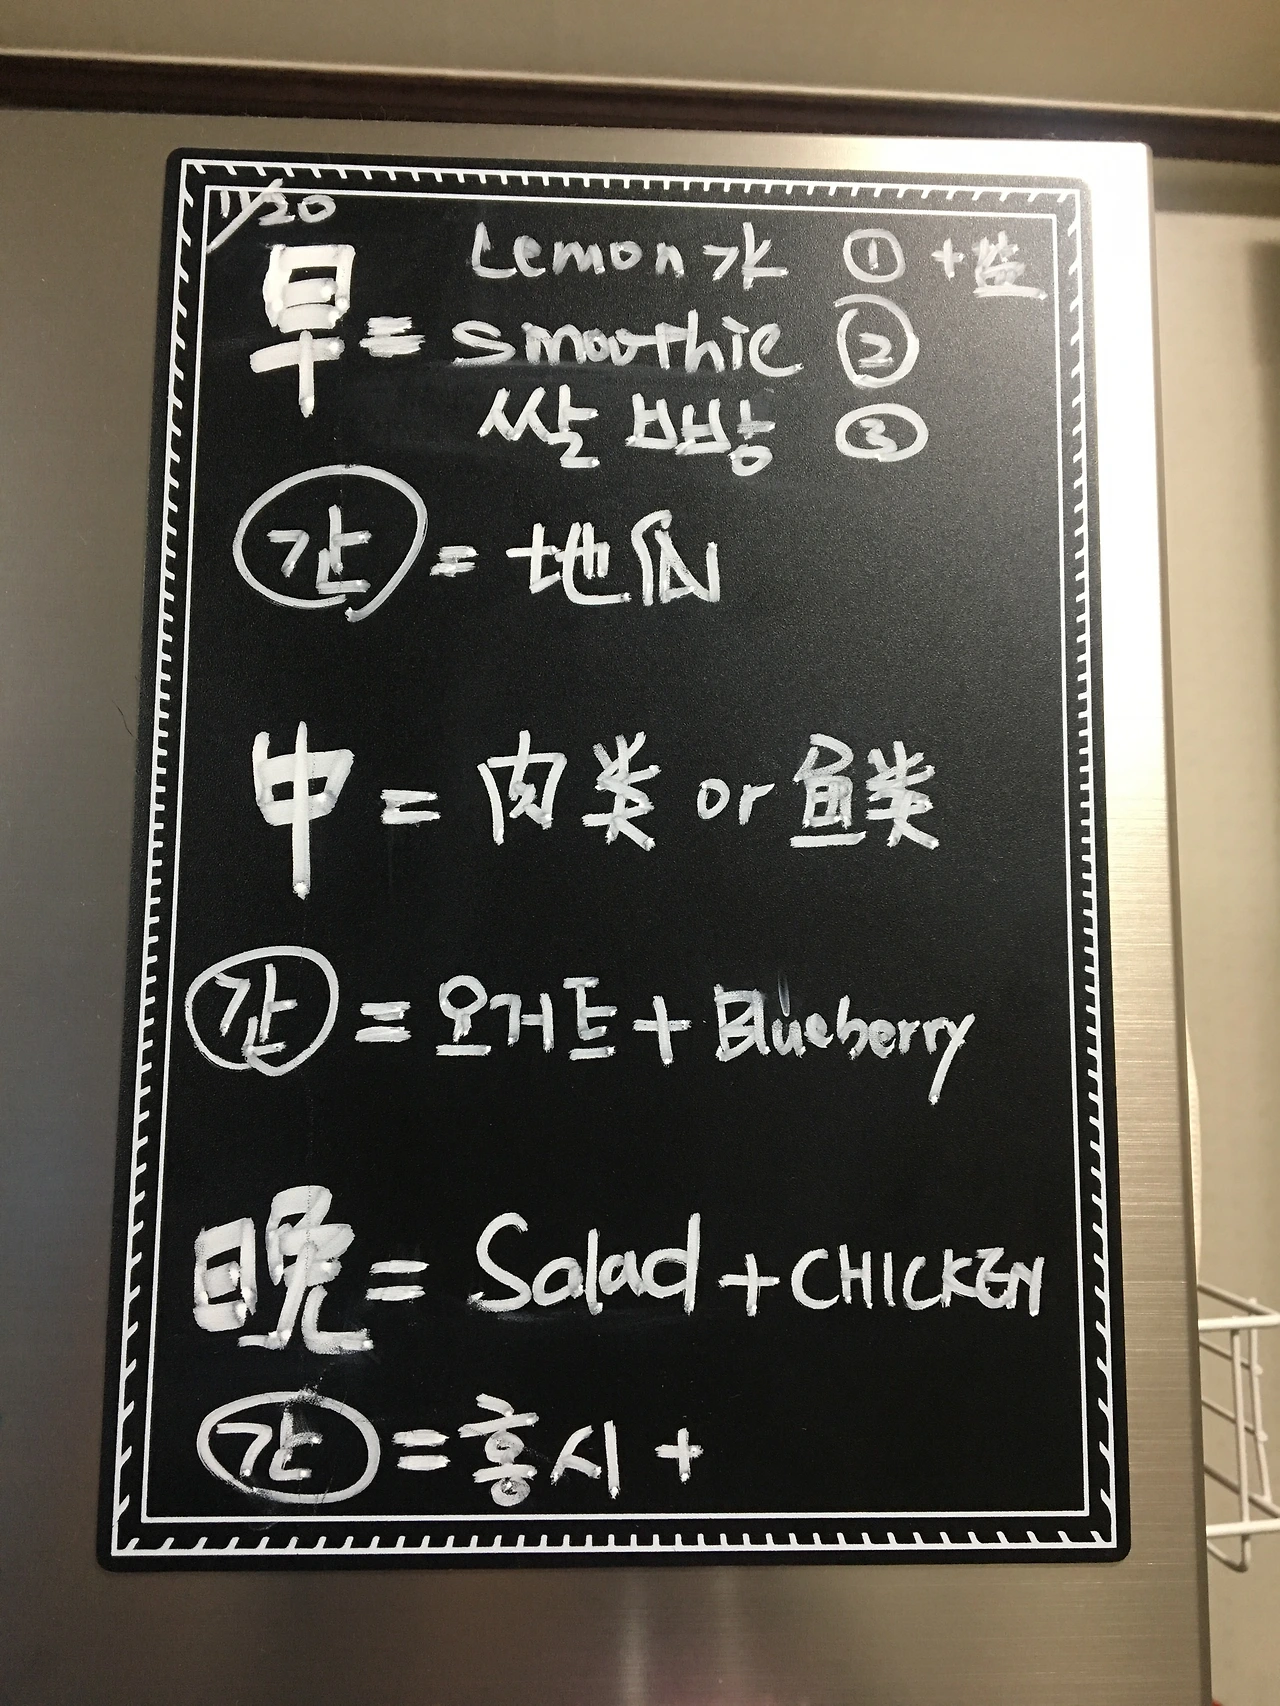 11/20
早 = Lemon水 ① +盐
smoothie ②
쌀빵 ③
간 = 地瓜
中 = 肉类 or 鱼类
간 = 요거트 + Blueberry
晚 = Salad + CHICKEN
간 = 홍시 +